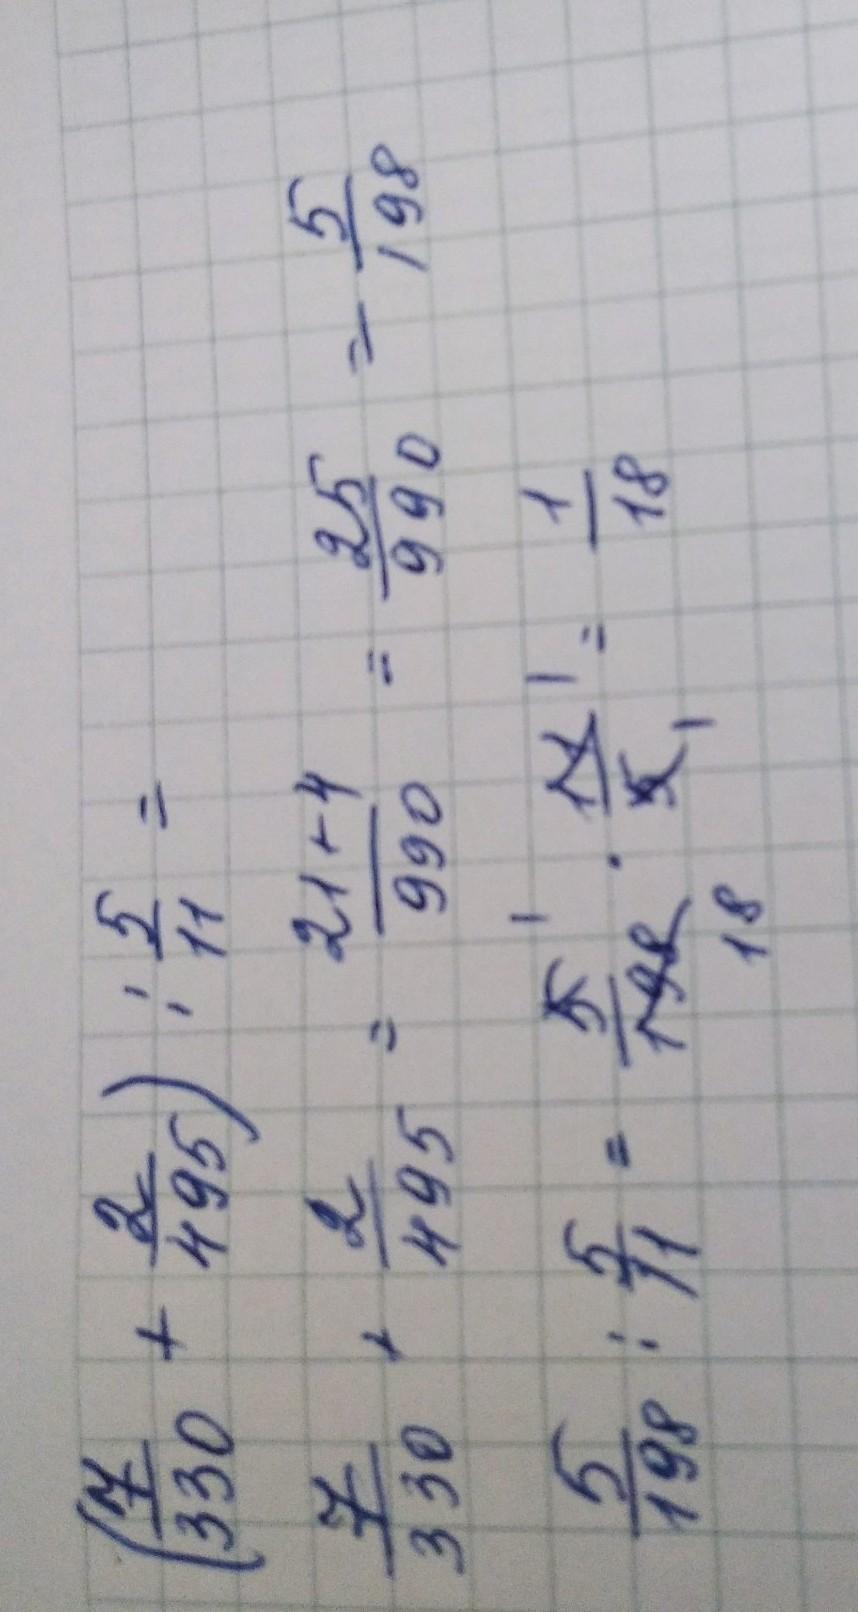 (7/330 + 2/495) : 5/11 =
7/330 + 2/495 = 21+4/990 = 25/990 = 5/198
5/198 : 5/11 = 5 1/198 18 · 11 1/5 1 = 1/18